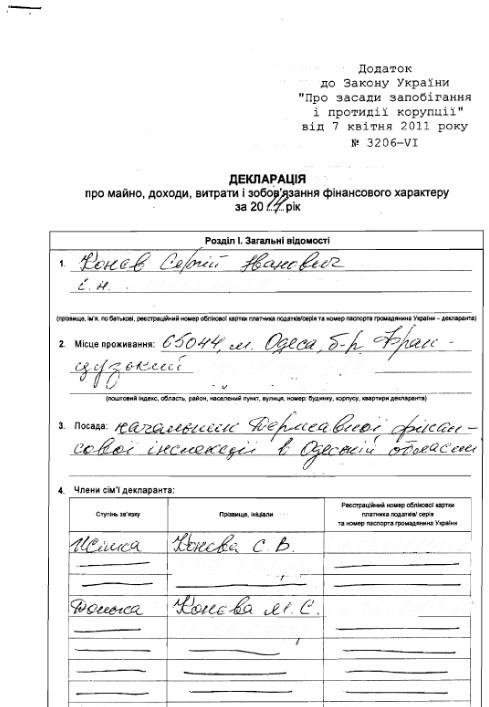 Додаток
до Закону України
"Про засади запобігання
і протидії корупції"
від 7 квітня 2011 року
№ 3206-VI
ДЕКЛАРАЦІЯ
про майно, доходи, витрати і зобов'язання фінансового характеру
за 2014 рік
Розділ I. Загальні відомості
1. Конєв Сергій Іванович
і.н.
(прізвище, ім'я, по батькові, реєстраційний номер облікової картки платника податків/серія та номер паспорта громадянина України – декларанта)
2. Місце проживання: 65044, м. Одеса, б-р Фран-
цузький
(поштовий індекс, область, район, населений пункт, вулиця, номер: будинку, корпусу, квартири декларанта)
3. Посада: начальник Державної фінан-
сової інспекції в Одеській області
4. Члени сім'ї декларанта:
Ступінь зв'язку Прізвище, ініціали Реєстраційний номер облікової картки
платника податків/ серія
та номер паспорта громадянина України
Жінка Конєва С.В.
Донька Конєва М.С.